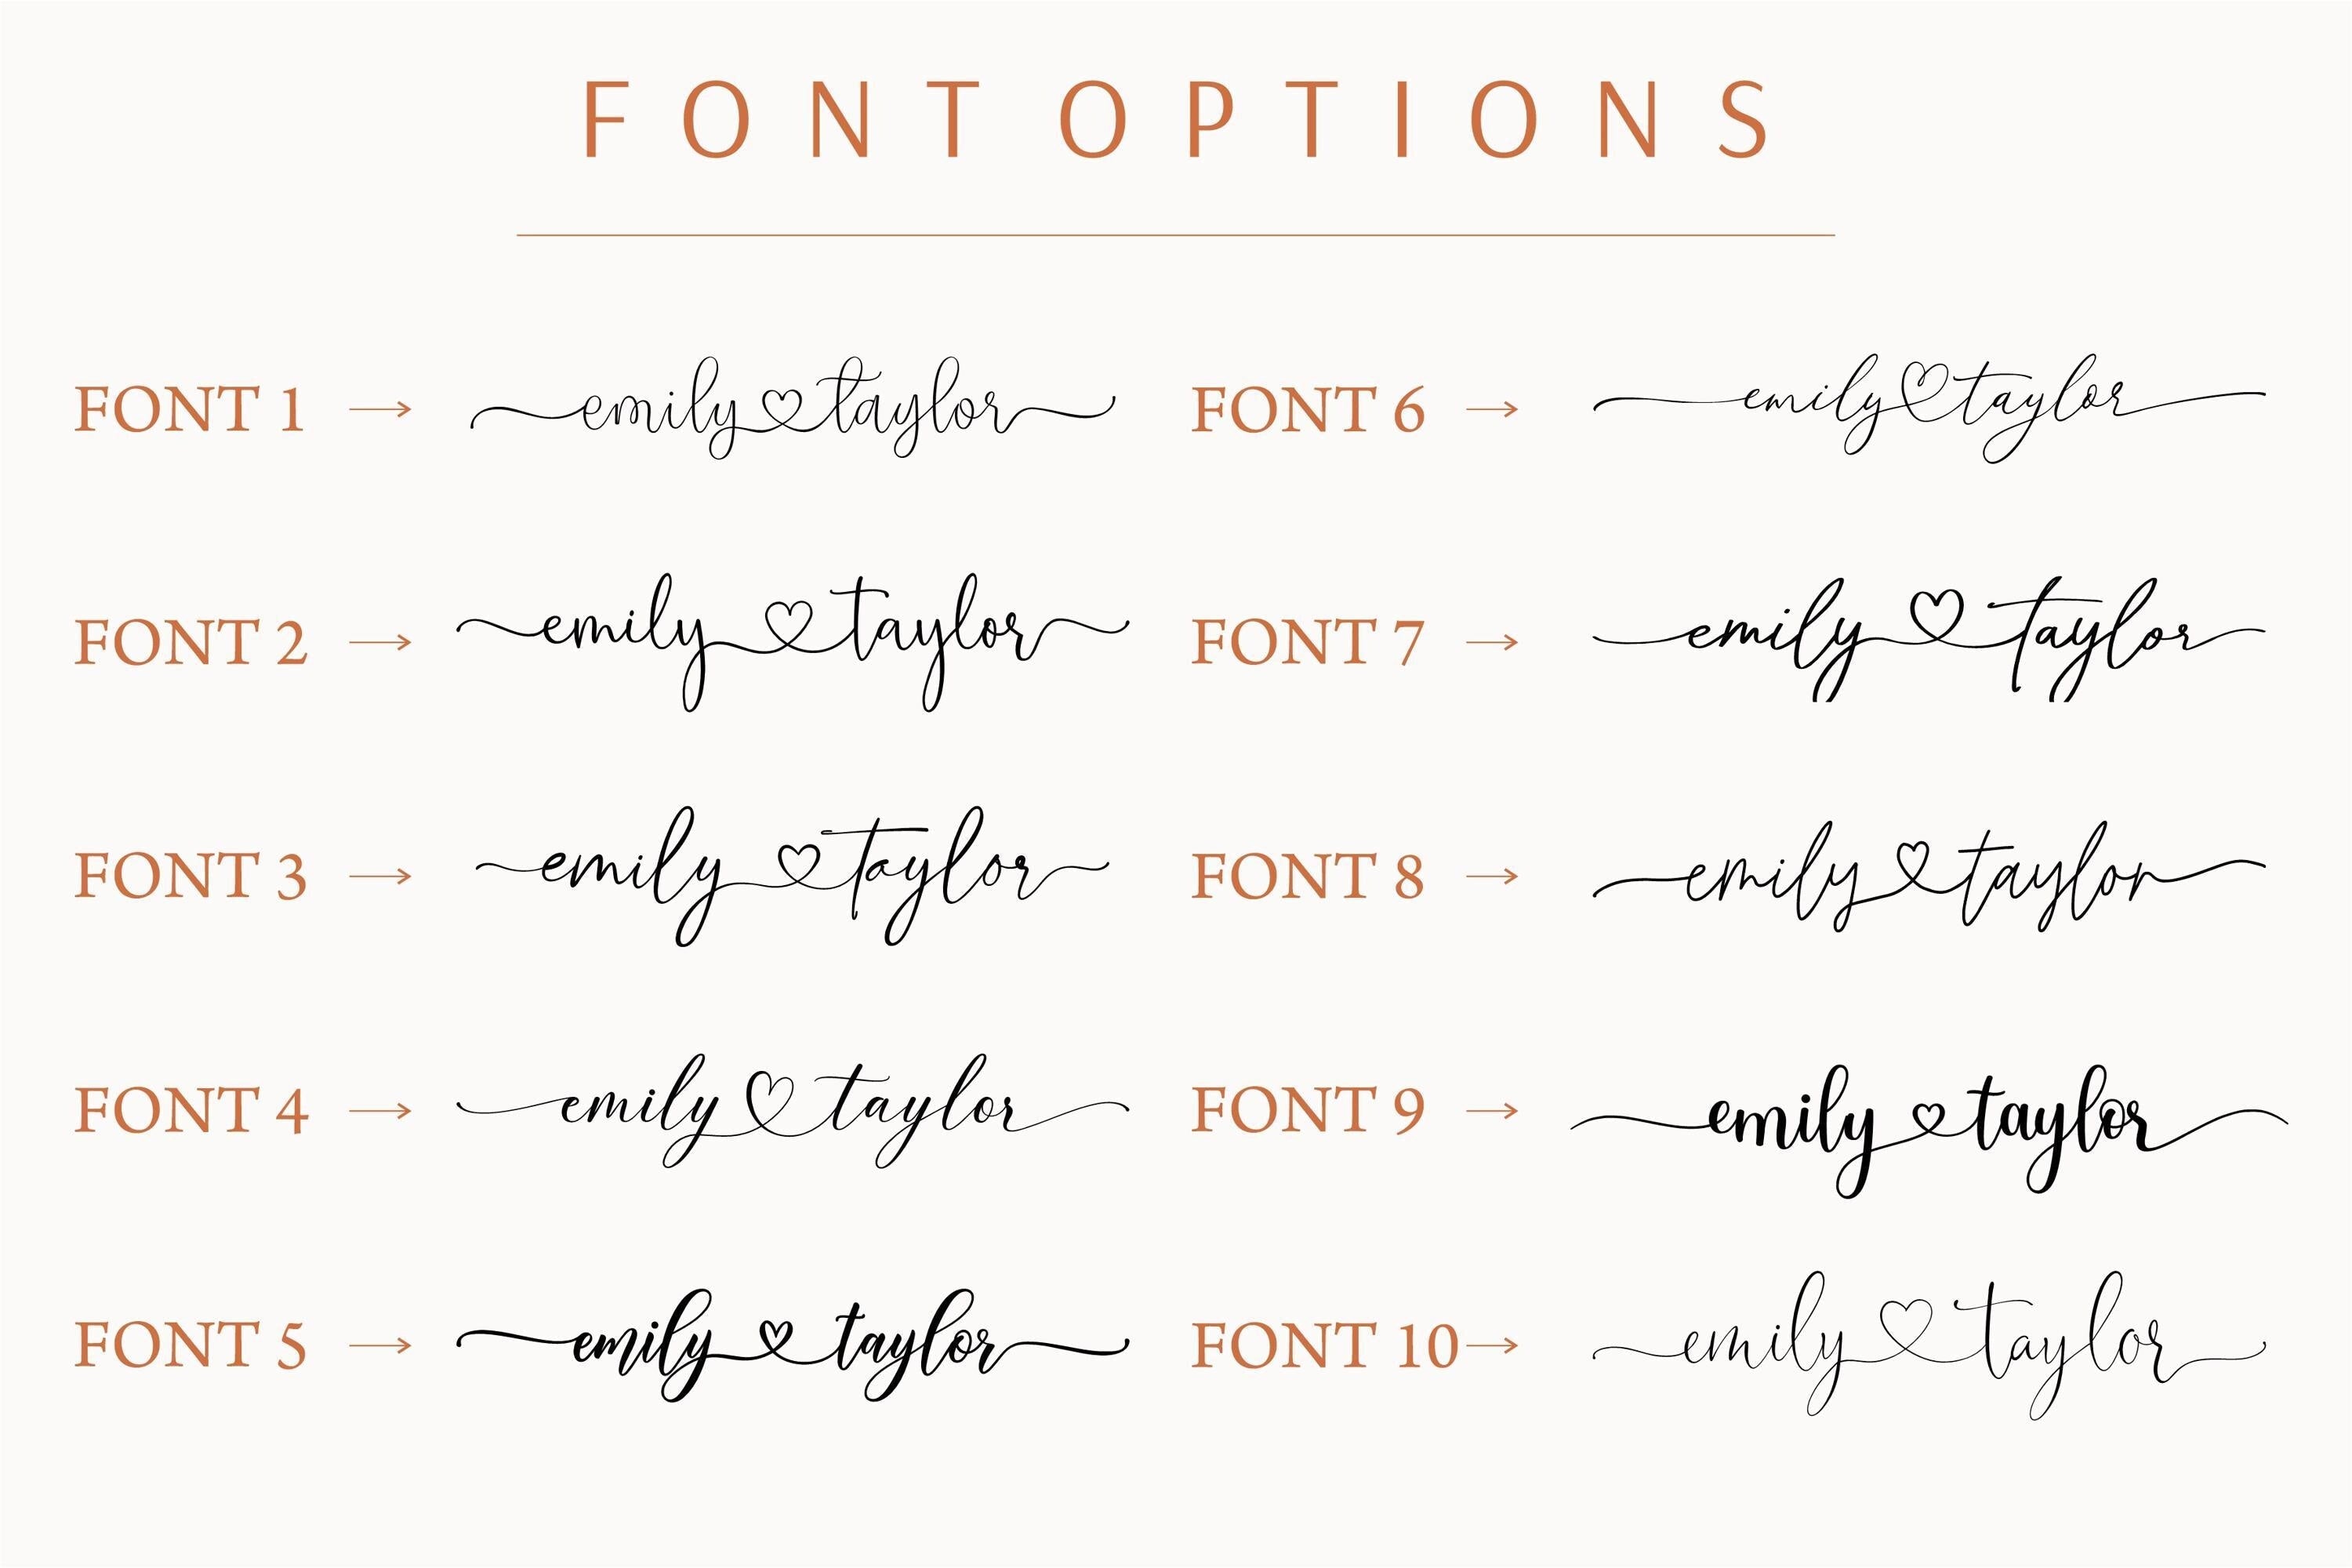 FONT OPTIONS
FONT 1 → emily ♡ taylor
FONT 2 → emily ♡ taylor
FONT 3 → emily ♡ taylor
FONT 4 → emily ♡ taylor
FONT 5 → emily ♡ taylor
FONT 6 → emily ♡ taylor
FONT 7 → emily ♡ taylor
FONT 8 → emily ♡ taylor
FONT 9 → emily ♡ taylor
FONT 10 → emily ♡ taylor